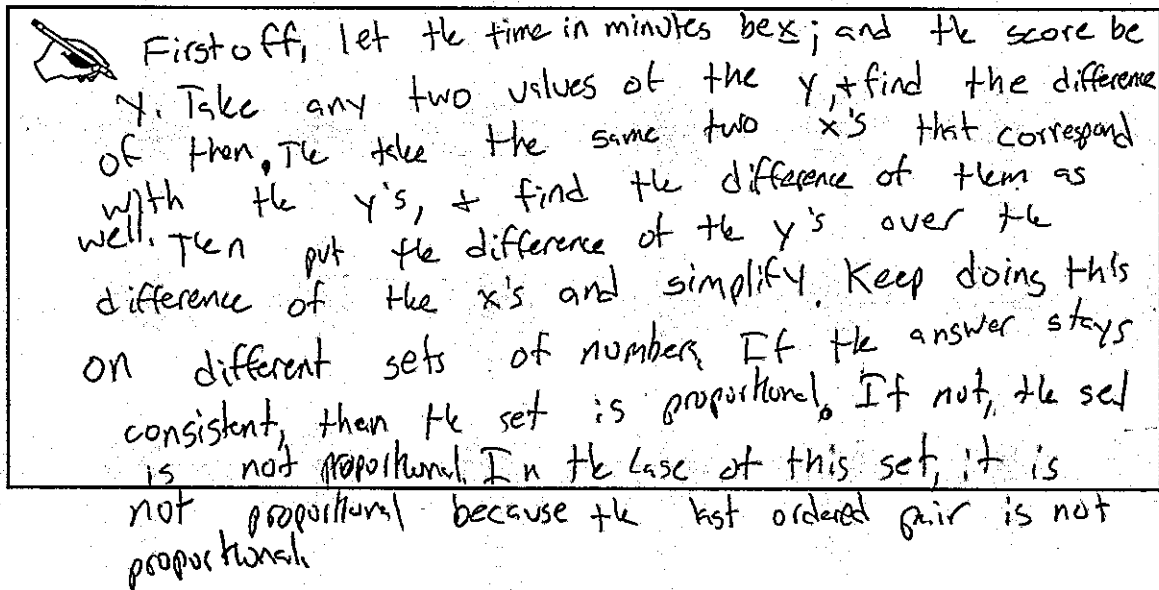 First off, let the time in minutes be x; and the score be
y. Take any two values of the y, + find the difference
of then. The take the same two x's that correspond
with the y's, + find the difference of them as
well. Then put the difference of the y's over the
difference of the x's and simplify. Keep doing this
on different sets of numbers. If the answer stays
consistent, then the set is proportional. If not, the set
is not proportional. In the case of this set, it is
not proportional because the last ordered pair is not
proportional.